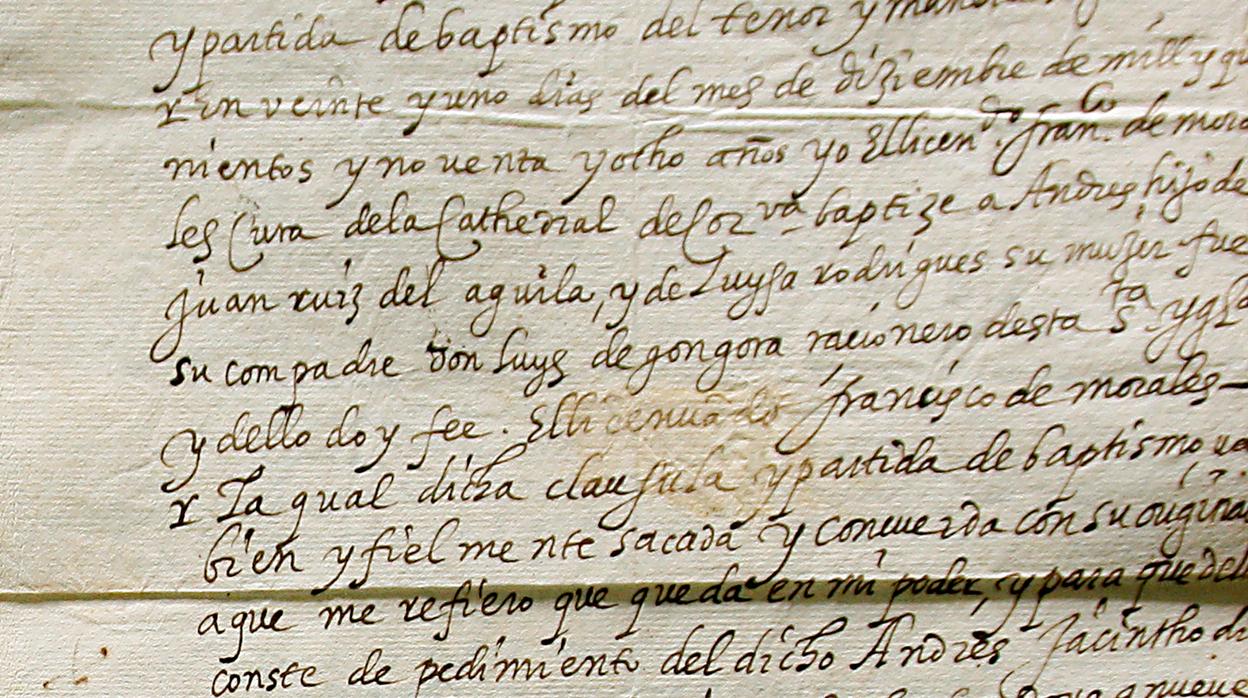 y partida de baptismo del tenor y mane
r En veinte y uno dias del mes de diziembre de mill y qu
nientos y noventa y ocho años yo El licen.do fran.co de mora
les Cura dela Cathedral de Cor.va baptize a Andres hijo de
juan ruiz del aguila, y de Luysa rodrigues su mujer fue
su compadre don luys de gongora racionero desta s.ta ygl.a
y dello doy fee. El licenciado francisco de morales
r La qual dicha clausula y partida de baptismo va
bien y fielmente sacada y concuerda con su origina
a que me refiero que queda en mi poder, y para que dell
conste de pedimiento del dicho Andres Jacintho d